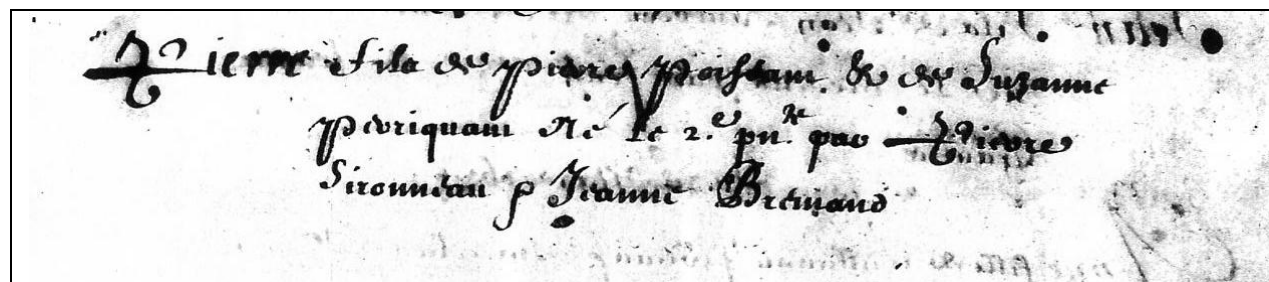 Pierre fils de Pierre Poissant & de Suzanne
Pevriquam Né le 2.e pnté par Pierre
Sironneau p Jeanne Bremand